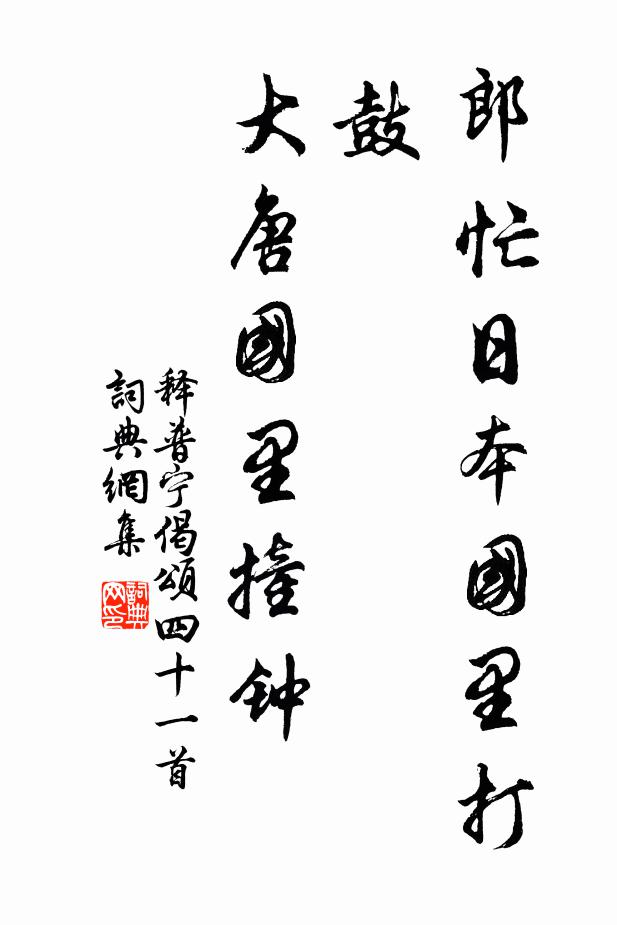 郎忙日本國里打
鼓
大唐國里撞钟
释普宁偈頌四十一首
詞典網集
詞典
网印